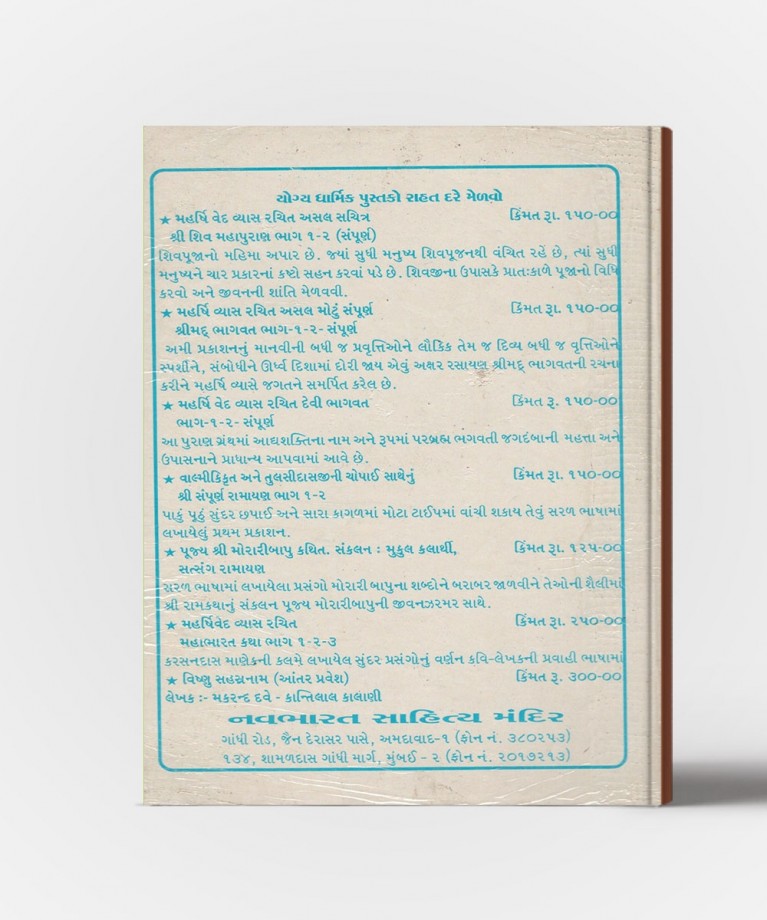 યોગ્ય ધાર્મિક પુસ્તકો રાહત દરે મેળવો
★ મહર્ષિ વેદ વ્યાસ રચિત અસલ સચિત્ર કિંમત રૂા. ૧૫૦-૦૦
શ્રી શિવ મહાપુરાણ ભાગ ૧-૨ (સંપૂર્ણ)
શિવપૂજાનો મહિમા અપાર છે. જ્યાં સુધી મનુષ્ય શિવપૂજનથી વંચિત રહે છે, ત્યાં સુધી
મનુષ્યને ચાર પ્રકારનાં કષ્ટો સહન કરવાં પડે છે. શિવજીના ઉપાસકે પ્રાતઃકાળે પૂજાનો વિધિ
કરવો અને જીવનની શાંતિ મેળવવી.
★ મહર્ષિ વ્યાસ રચિત અસલ મોટું સંપૂર્ણ કિંમત રૂા. ૧૫૦-૦૦
શ્રીમદ્ ભાગવત ભાગ-૧-૨- સંપૂર્ણ
અમી પ્રકાશનનું માનવીની બધી જ પ્રવૃત્તિઓને લૌકિક તેમ જ દિવ્ય બધી જ વૃત્તિઓને
સ્પર્શીને, સંબોધીને ઊર્ધ્વ દિશામાં દોરી જાય એવું અક્ષર રસાયણ શ્રીમદ્ ભાગવતની રચના
કરીને મહર્ષિ વ્યાસે જગતને સમર્પિત કરેલ છે.
★ મહર્ષિ વેદ વ્યાસ રચિત દેવી ભાગવત કિંમત રૂ. ૧૫૦-૦૦
ભાગ-૧-૨- સંપૂર્ણ
આ પુરાણ ગ્રંથમાં આદ્યશક્તિના નામ અને રૂપમાં પરબ્રહ્મ ભગવતી જગદંબાની મહત્તા અને
ઉપાસનાને પ્રાધાન્ય આપવામાં આવે છે.
★ વાલ્મીકિકૃત અને તુલસીદાસજીની ચોપાઈ સાથેનું કિંમત રૂા. ૧૫૦-૦૦
શ્રી સંપૂર્ણ રામાયણ ભાગ ૧-૨
પાકું પૂઠું સુંદર છપાઈ અને સારા કાગળમાં મોટા ટાઈપમાં વાંચી શકાય તેવું સરળ ભાષામાં
લખાયેલું પ્રથમ પ્રકાશન.
★ પૂજ્ય શ્રી મોરારીબાપુ કથિત. સંકલન : મુકુલ કલાર્થી, કિંમત રૂા. ૧૨૫-૦૦
સત્સંગ રામાયણ
સરળ ભાષામાં લખાયેલા પ્રસંગો મોરારી બાપુના શબ્દોને બરાબર જાળવીને તેઓની શૈલીમાં
શ્રી રામકથાનું સંકલન પૂજ્ય મોરારીબાપુની જીવનઝરમર સાથે.
★ મહર્ષિવેદ વ્યાસ રચિત કિંમત રૂા. ૨૫૦-૦૦
મહાભારત કથા ભાગ ૧-૨-૩
કરસનદાસ માણેકની કલમે લખાયેલ સુંદર પ્રસંગોનું વર્ણન કવિ-લેખકની પ્રવાહી ભાષામાં
★ વિષ્ણુ સહસ્રનામ (આંતર પ્રવેશ) કિંમત રૂ. ૩૦૦-૦૦
લેખક :- મકરન્દ દવે - કાન્તિલાલ કાલાણી
નવભારત સાહિત્ય મંદિર
ગાંધી રોડ, જૈન દેરાસર પાસે, અમદાવાદ-૧ (ફોન નં. ૩૮૦૨૫૩)
૧૩૪, શામળદાસ ગાંધી માર્ગ, મુંબઈ - ૨ (ફોન નં. ૨૦૧૭૨૧૩)